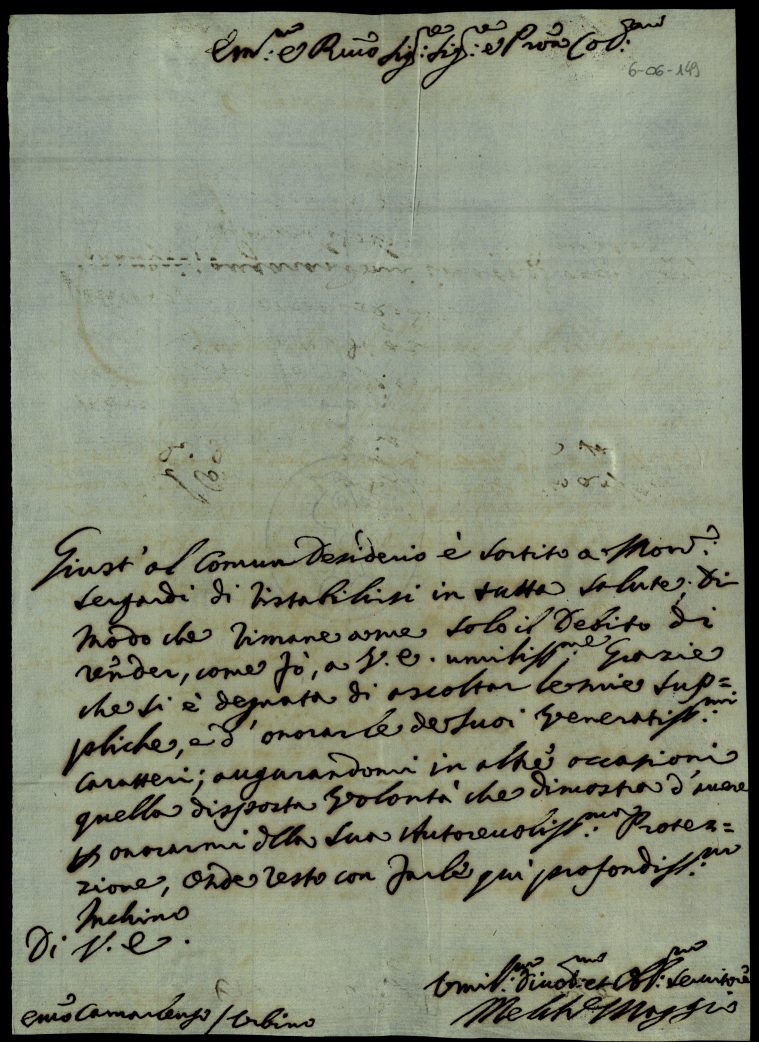 Em.mo e Rmo Sig.re Sig.re e Pron Col.mo
6-06-149
Giust'al Comun Desiderio è sortito a Mons.r
Sergardi di ristabilirsi in tutta salute; Di
modo che rimane a me solo il Debito di
render, come fò, a V. E. umiliss.me Grazie
che si è degnata di ascoltar le mie sup=
pliche, e d'onorarle de suoi veneratiss.mi
caratteri; augurandomi in altre occasioni
quella disposta volontà che dimostra d'avere
onorarmi della sua Autorevoliss.ma Protez=
zione, Onde resto con farle qui profondiss.mo
Inchino
Di V. E.
Umil.mo Divot.mo et Obl.mo Servitore
Maggio
Emo Camarlengo / Urbino